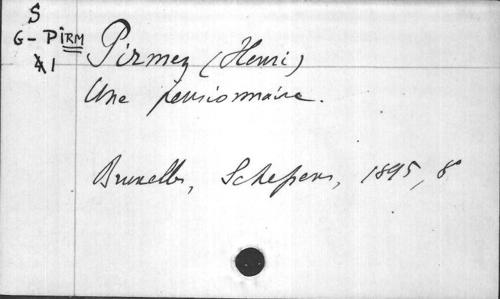 S
G- PIRM
1
Pirmez (Henri)
Une pensionnaire.
Bruxelles, Schepens, 1895, 8°